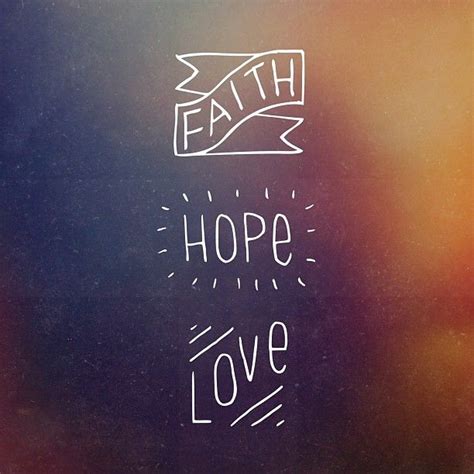 FAITH
HOPe
LOVe